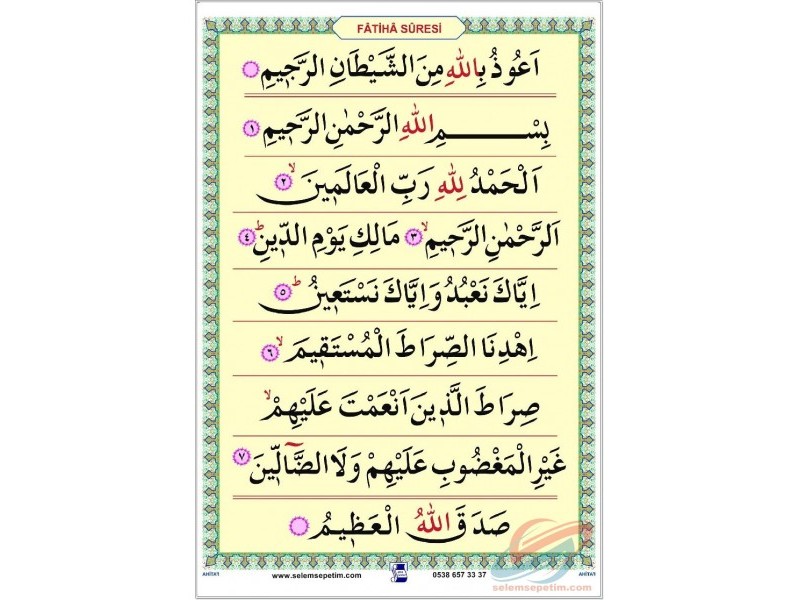 FÂTİHÂ SÛRESİ
اَعُوذُ بِاللهِ مِنَ الشَّيْطَانِ الرَّجٖيمِ
بِسْــــــــمِ اللهِ الرَّحْمٰنِ الرَّحٖيمِ ١
اَلْحَمْدُ لِلهِ رَبِّ الْعَالَمٖينَۙ ٢
اَلرَّحْمٰنِ الرَّحٖيمِۙ ٣ مَالِكِ يَوْمِ الدّٖينِۜ ٤
اِيَّاكَ نَعْبُدُ وَاِيَّاكَ نَسْتَعٖينُۜ ٥
اِهْدِنَا الصِّرَاطَ الْمُسْتَقٖيمَۙ ٦
صِرَاطَ الَّذٖينَ اَنْعَمْتَ عَلَيْهِمْۙ
غَيْرِ الْمَغْضُوبِ عَلَيْهِمْ وَلَا الضَّٓالّٖينَ ٧
صَدَقَ اللهُ الْعَظٖيمُ
FATİHA www.selemsepetim.com 0538 657 33 37 FATİHA
selemsepetim.com